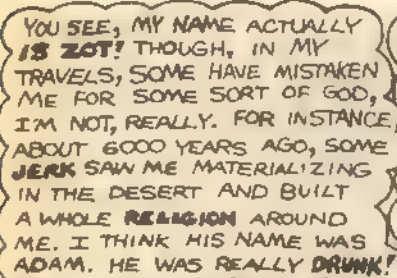 YOU SEE, MY NAME ACTUALLY
IS ZOT! THOUGH, IN MY
TRAVELS, SOME HAVE MISTAKEN
ME FOR SOME SORT OF GOD,
I'M NOT, REALLY. FOR INSTANCE,
ABOUT 6000 YEARS AGO, SOME
JERK SAW ME MATERIALIZING
IN THE DESERT AND BUILT
A WHOLE RELIGION AROUND
ME. I THINK HIS NAME WAS
ADAM. HE WAS REALLY DRUNK!